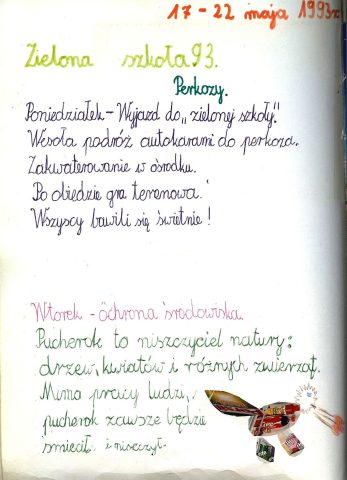 17 - 22 maja 1993r.
Zielona szkoła 93.
Perkozy.
Poniedziałek - Wyjazd do „zielonej szkoły".
Wesoła podróż autokarami do perkoza.
Zakwaterowanie w ośrodku.
Po obiedzie gra terenowa.
Wszyscy bawili się świetnie!
Wtorek - ochrona środowiska.
Pucherok to niszczyciel natury:
drzew, kwiatów i różnych zwierząt.
Mimo pracy ludzi,
pucherok zawsze będzie
śmiecił i niszczył.